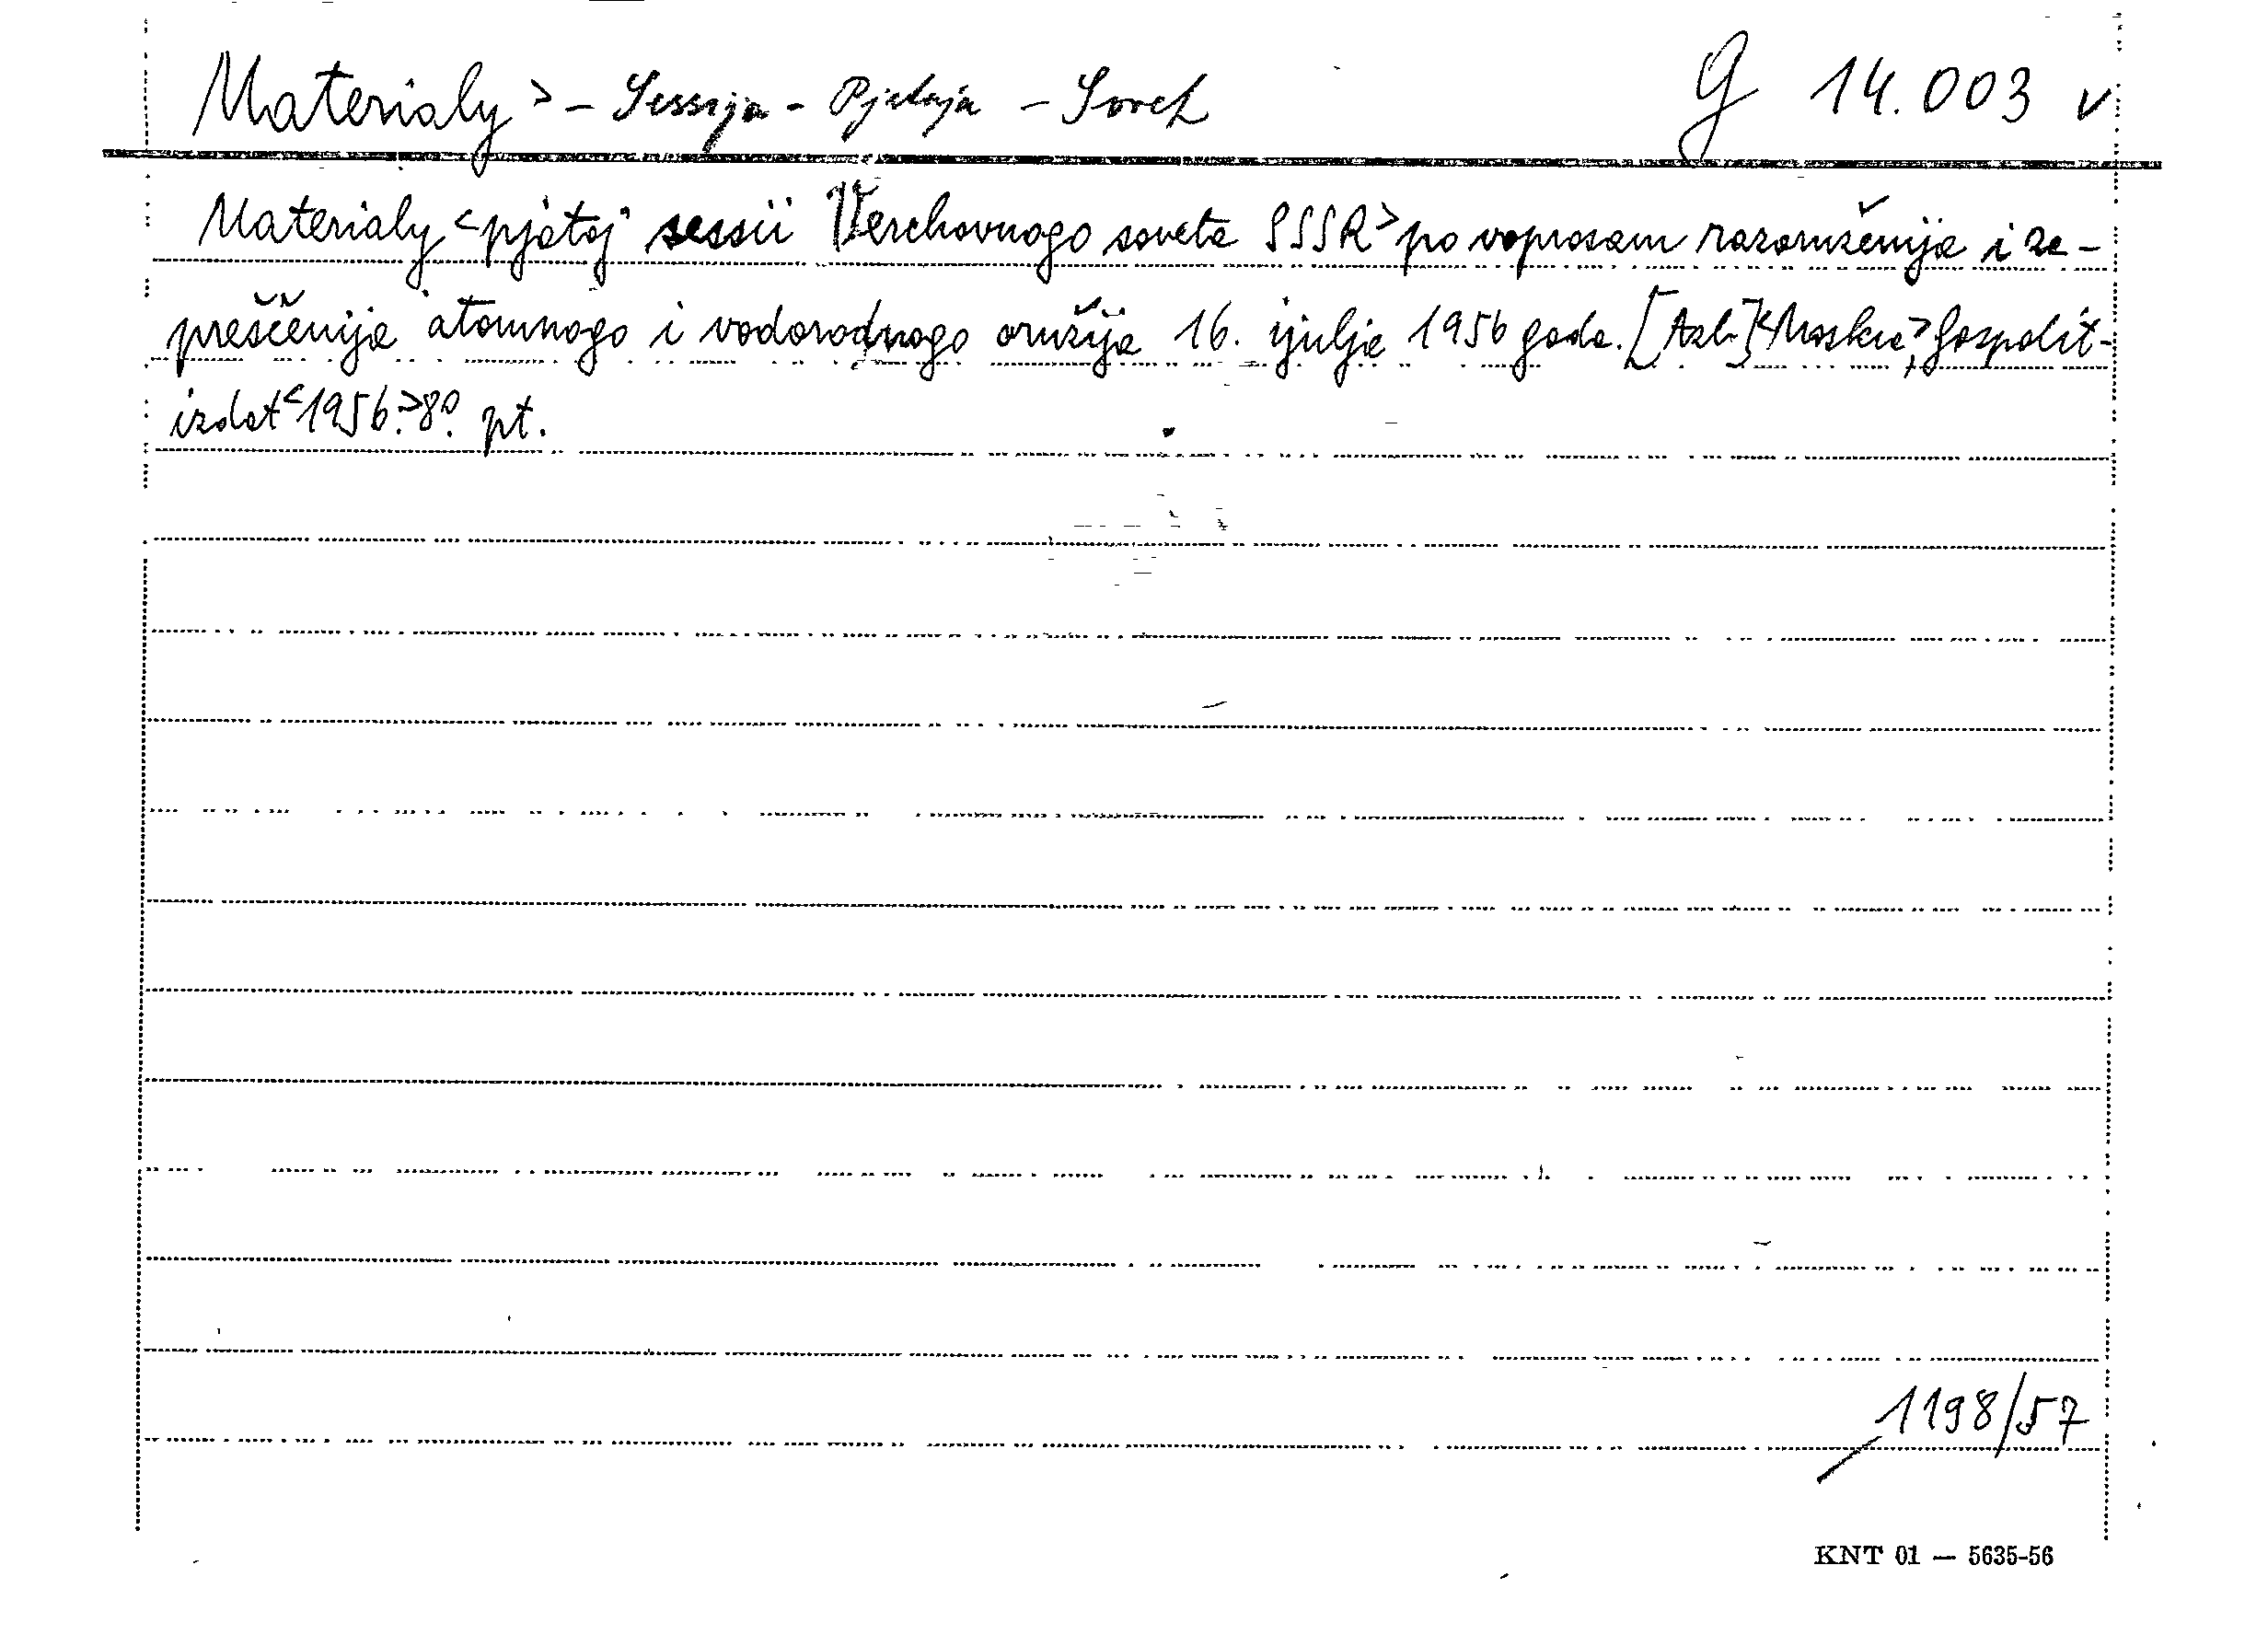 Materialy > – Sessija – Pjataja – Sovet G 14.003 v
Materialy <pjatoj sessii Verchovnogo soveta SSSR> po voprosam razoruženija i za-
preščenija atomnogo i vodorodnogo oružija 16. ijulja 1956 goda. [Azb.] <Moskva>, Gospolit-
izdat <1956.> 8°. pt.
1198/57
KNT 01 — 5635-56